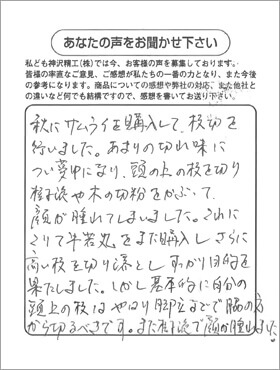 あなたの声をお聞かせ下さい
私ども神沢精工(株)では今、お客様の声を募集しております。
皆様の率直なご意見、ご感想が私たちの一番の力となり、また今後
の参考になります。商品についての感想や弊社の対応、また他社と
の違いなど何でも結構ですので、感想を書いてお送り下さい。
秋にサムライを購入して、枝切を
行いました。あまりの切れ味に
つい夢中になり、頭の上の枝を切り
樹液や木の切粉をかぶって、
顔が腫れてしまいました。これに
こりて牛若丸をまた購入しさらに
高い枝を切り落とし すっかり目的を
果たしました。しかし基本的に自分の
頭上の枝はやはり脚立などで脇の方
から切るべきです。また樹液で顔が腫れました。